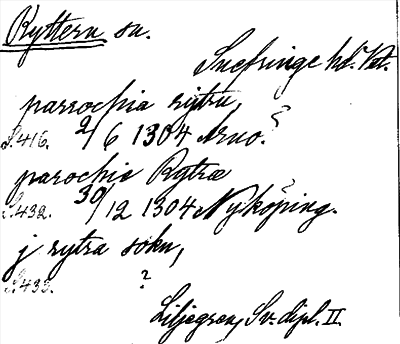 Ryttern sn.
Snefringe hd. Vst.
parrochia rytru,
S. 416. 2/6 1304 Arnö. ?
parochia Rytræ
S. 432. 30/12 1304 Nyköping. ?
j rytra sokn,
S. 433. ?
Liljegren, Sv. dipl. II.